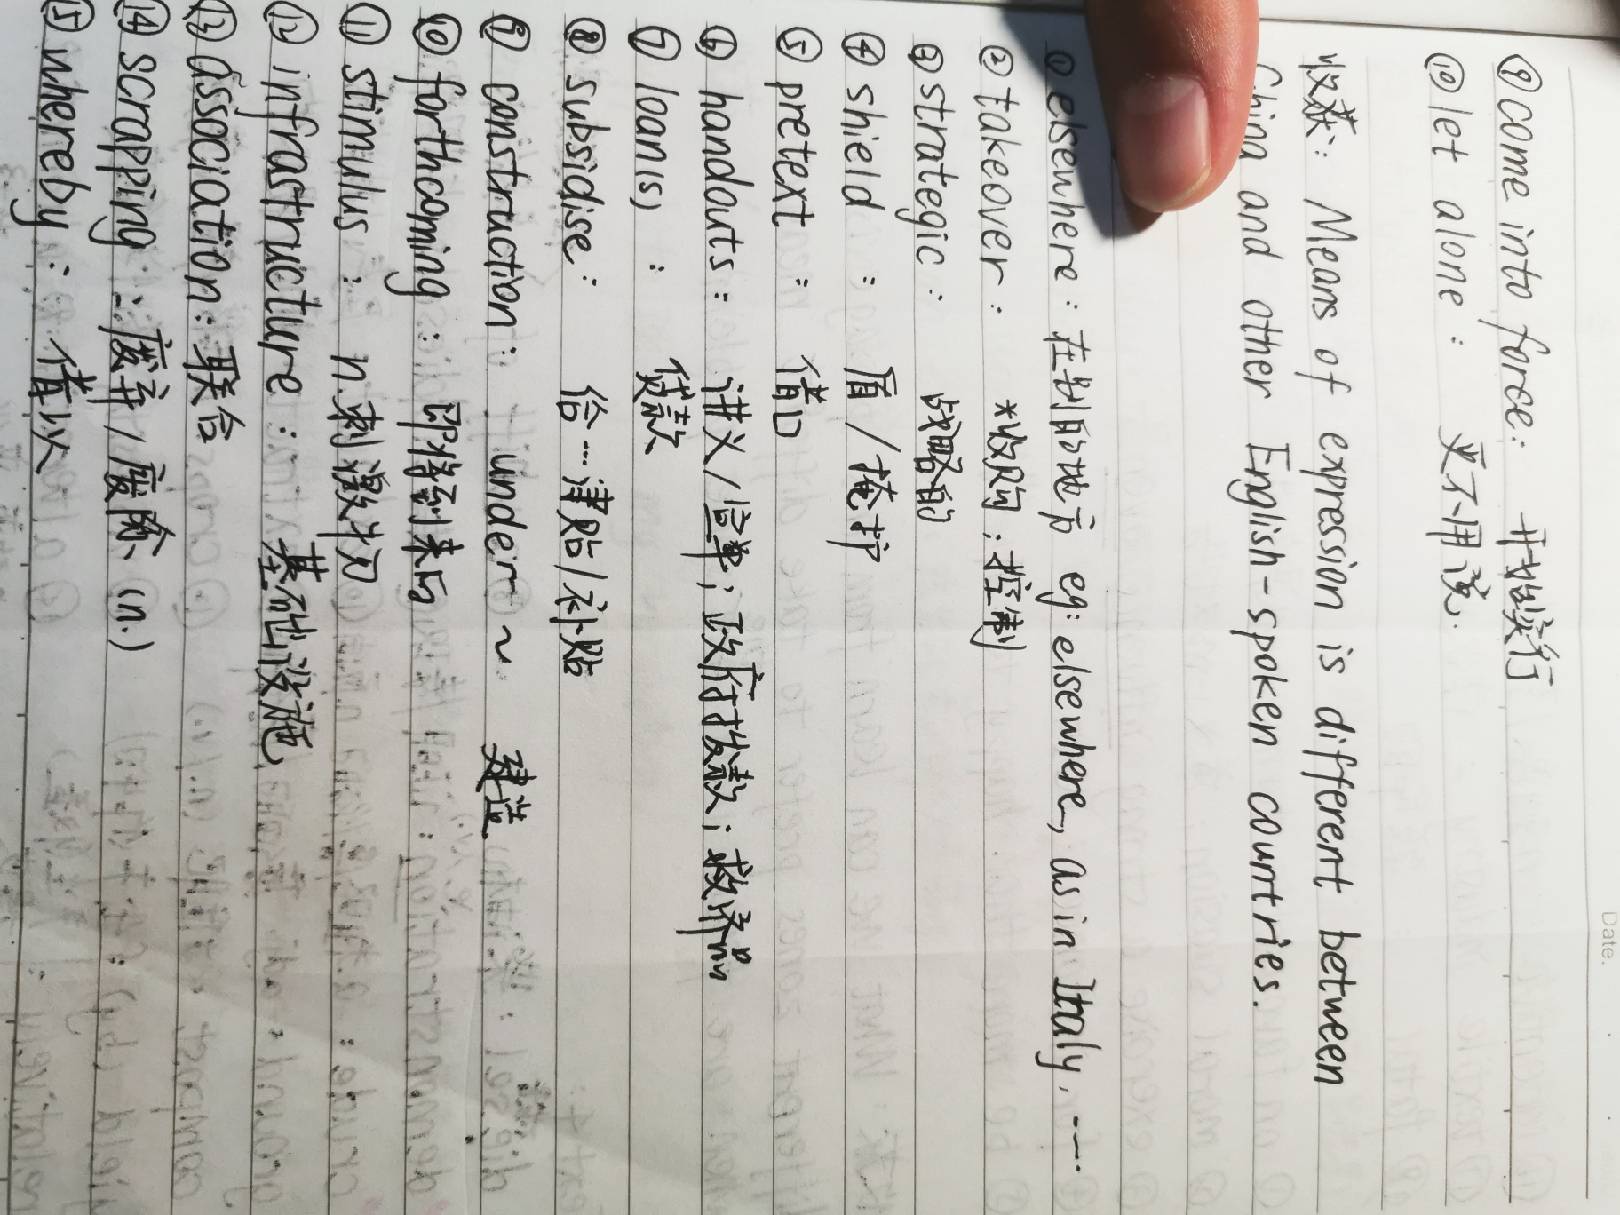 Date.
⑨ come into force: 开始实行
⑩ let alone: 更不用说.
收获: Means of expression is different between
China and other English-spoken countries.
① elsewhere: 在别的地方 eg: elsewhere, as in Italy, ---.
② takeover: *收购; 控制
③ strategic: 战略的
④ shield: 盾/掩护
⑤ pretext: 借口
⑥ handouts: 讲义/传单; 政府拨款; 救济品
⑦ loan(s): 贷款
⑧ subsidise: 给…津贴/补贴
⑨ construction: under ~ 建造
⑩ forthcoming: 即将到来的
⑪ stimulus: n 刺激物
⑫ infrastructure: 基础设施
⑬ association: 联合
⑭ scrapping: 废弃/废除 (n.)
⑮ whereby: 借以